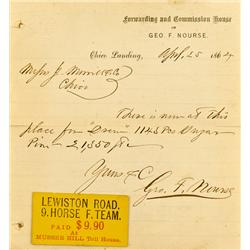 Forwarding and Commission House
OF
GEO. F. NOURSE.
Chico Landing, Sept. 25 1864
Messrs J.
Chico
There is now at this
place for "Dein" 1143 Pcs Sugar
Pine 21,350 ft
Yours &C
Geo. F. Nourse
LEWISTON ROAD.
9. HORSE F. TEAM.
PAID $9.90
AT
MUSSER HILL Toll House.